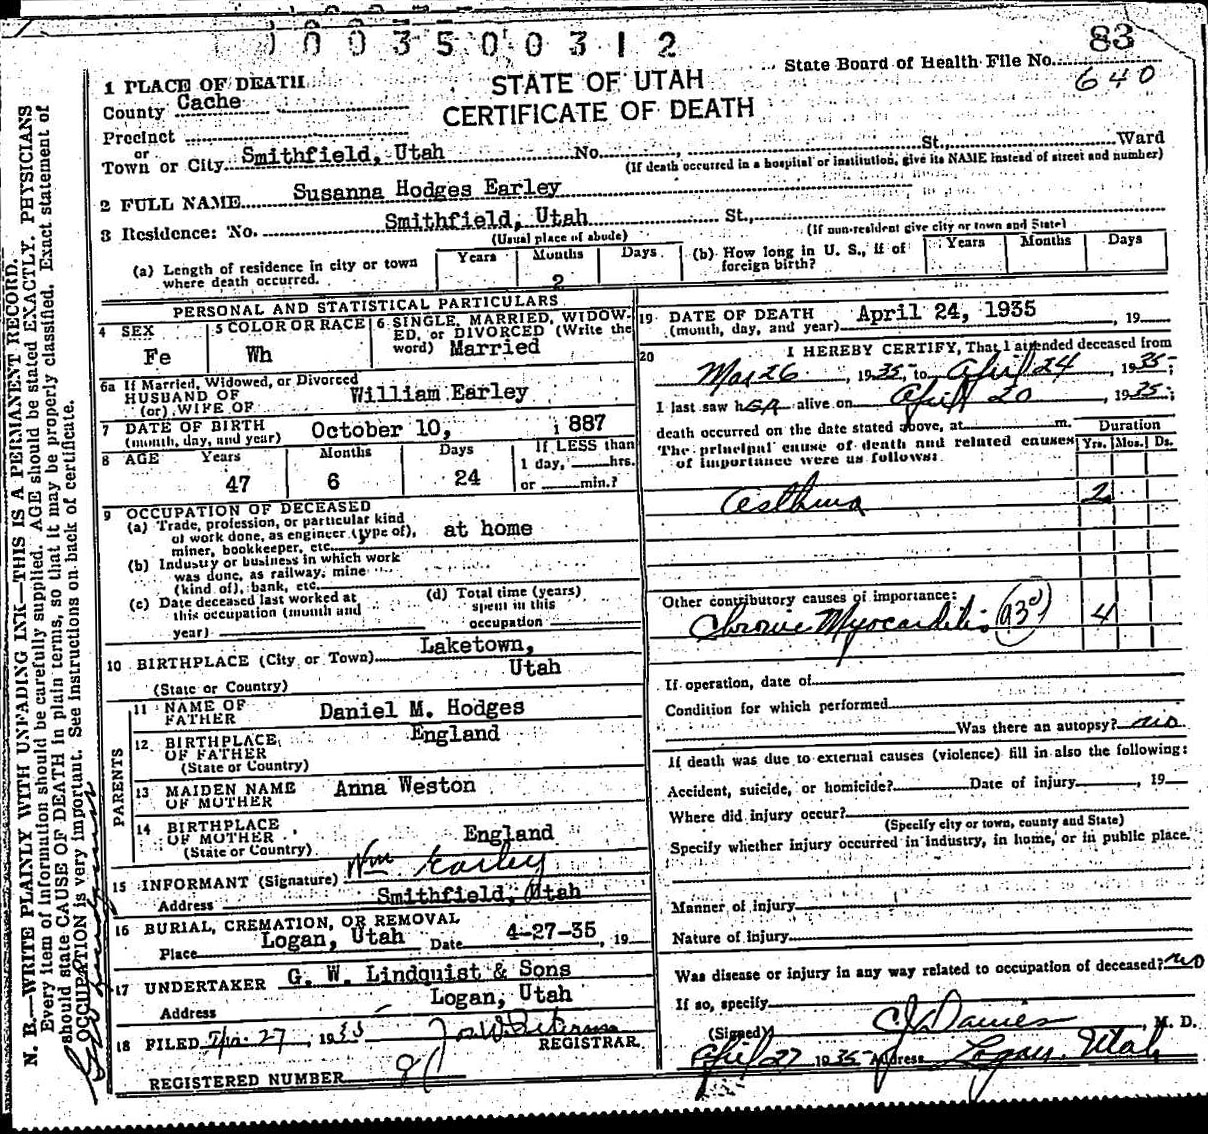 1 0 0 3 5 0 0 3 1 2
83
State Board of Health File No.
640
STATE OF UTAH
CERTIFICATE OF DEATH
1 PLACE OF DEATH
County Cache
Precinct
or
Town or City Smithfield, Utah No. , St., Ward
(If death occurred in a hospital or institution, give its NAME instead of street and number)
2 FULL NAME Susanna Hodges Earley
3 Residence: No. Smithfield, Utah St.,
(Usual place of abode) (If non-resident give city or town and State)
(a) Length of residence in city or town where death occurred. Years Months 2 Days
(b) How long in U. S., if of foreign birth? Years Months Days
PERSONAL AND STATISTICAL PARTICULARS
4 SEX Fe
5 COLOR OR RACE Wh
6 SINGLE, MARRIED, WIDOWED, or DIVORCED (Write the word) Married
6a If Married, Widowed, or Divorced
HUSBAND OF
(or) WIFE OF William Earley
7 DATE OF BIRTH
(month, day, and year) October 10, 1887
8 AGE Years Months Days If LESS than
47 6 24 1 day, hrs.
or min.?
9 OCCUPATION OF DECEASED
(a) Trade, profession, or particular kind
of work done, as engineer (type of),
miner, bookkeeper, etc. at home
(b) Industry or business in which work
was done, as railway, mine
(kind of), bank, etc.
(c) Date deceased last worked at
this occupation (month and
year)
(d) Total time (years)
spent in this
occupation
10 BIRTHPLACE (City or Town) Laketown,
(State or Country) Utah
PARENTS
11 NAME OF
FATHER Daniel M. Hodges
12 BIRTHPLACE
OF FATHER England
(State or Country)
13 MAIDEN NAME
OF MOTHER Anna Weston
14 BIRTHPLACE
OF MOTHER England
(State or Country)
15 INFORMANT (Signature) Wm Earley
Address Smithfield, Utah
16 BURIAL, CREMATION, OR REMOVAL
Place Logan, Utah Date 4-27-35, 19
17 UNDERTAKER G. W. Lindquist & Sons
Address Logan, Utah
18 FILED 27, 1935
REGISTRAR.
REGISTERED NUMBER
19 DATE OF DEATH
(month, day, and year) April 24, 1935, 19
20 I HEREBY CERTIFY, That I attended deceased from
Mar 26, 1935, to April 24, 1935;
I last saw her alive on April 20, 1935;
death occurred on the date stated above, at m. Duration
The principal cause of death and related causes Yrs. Mos. Ds.
of importance were as follows:
Asthma 2
Other contributory causes of importance:
Chronic Myocarditis 4
If operation, date of
Condition for which performed
Was there an autopsy? no
If death was due to external causes (violence) fill in also the following:
Accident, suicide, or homicide? Date of injury , 19
Where did injury occur?
(Specify city or town, county and State)
Specify whether injury occurred in industry, in home, or in public place.
Manner of injury
Nature of injury
Was disease or injury in any way related to occupation of deceased? no
If so, specify
(Signed) C J Daines, M. D.
April 27 1935 Address Logan, Utah
N. B.—WRITE PLAINLY WITH UNFADING INK—THIS IS A PERMANENT RECORD.
Every item of information should be carefully supplied. AGE should be stated EXACTLY. PHYSICIANS
should state CAUSE OF DEATH in plain terms, so that it may be properly classified. Exact statement of
OCCUPATION is very important. See instructions on back of certificate.